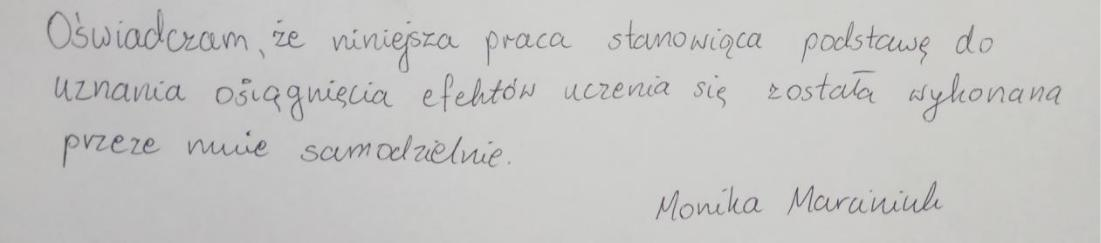 Oświadczam, że niniejsza praca stanowiąca podstawę do
uznania osiągnięcia efektów uczenia się została wykonana
przeze mnie samodzielnie.
Monika Marciniuk